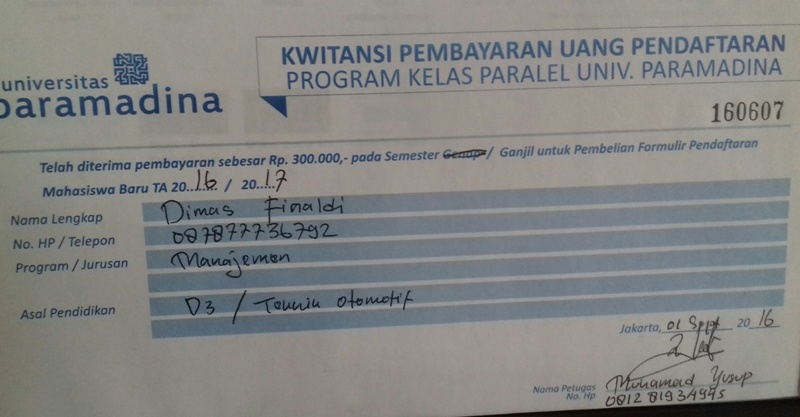 universitas
paramadina
KWITANSI PEMBAYARAN UANG PENDAFTARAN
PROGRAM KELAS PARALEL UNIV. PARAMADINA
160607
Telah diterima pembayaran sebesar Rp. 300.000,- pada Semester Genap / Ganjil untuk Pembelian Formulir Pendaftaran
Mahasiswa Baru TA 20..16 / 20..17
Nama Lengkap Dimas Finaldi
No. HP / Telepon 087877736792
Program / Jurusan Manajemen
Asal Pendidikan D3 / Teknik Otomotif
Jakarta, 01 Sept 2016
Nama Petugas Muhamad Yusup
No. Hp 0812 81934945